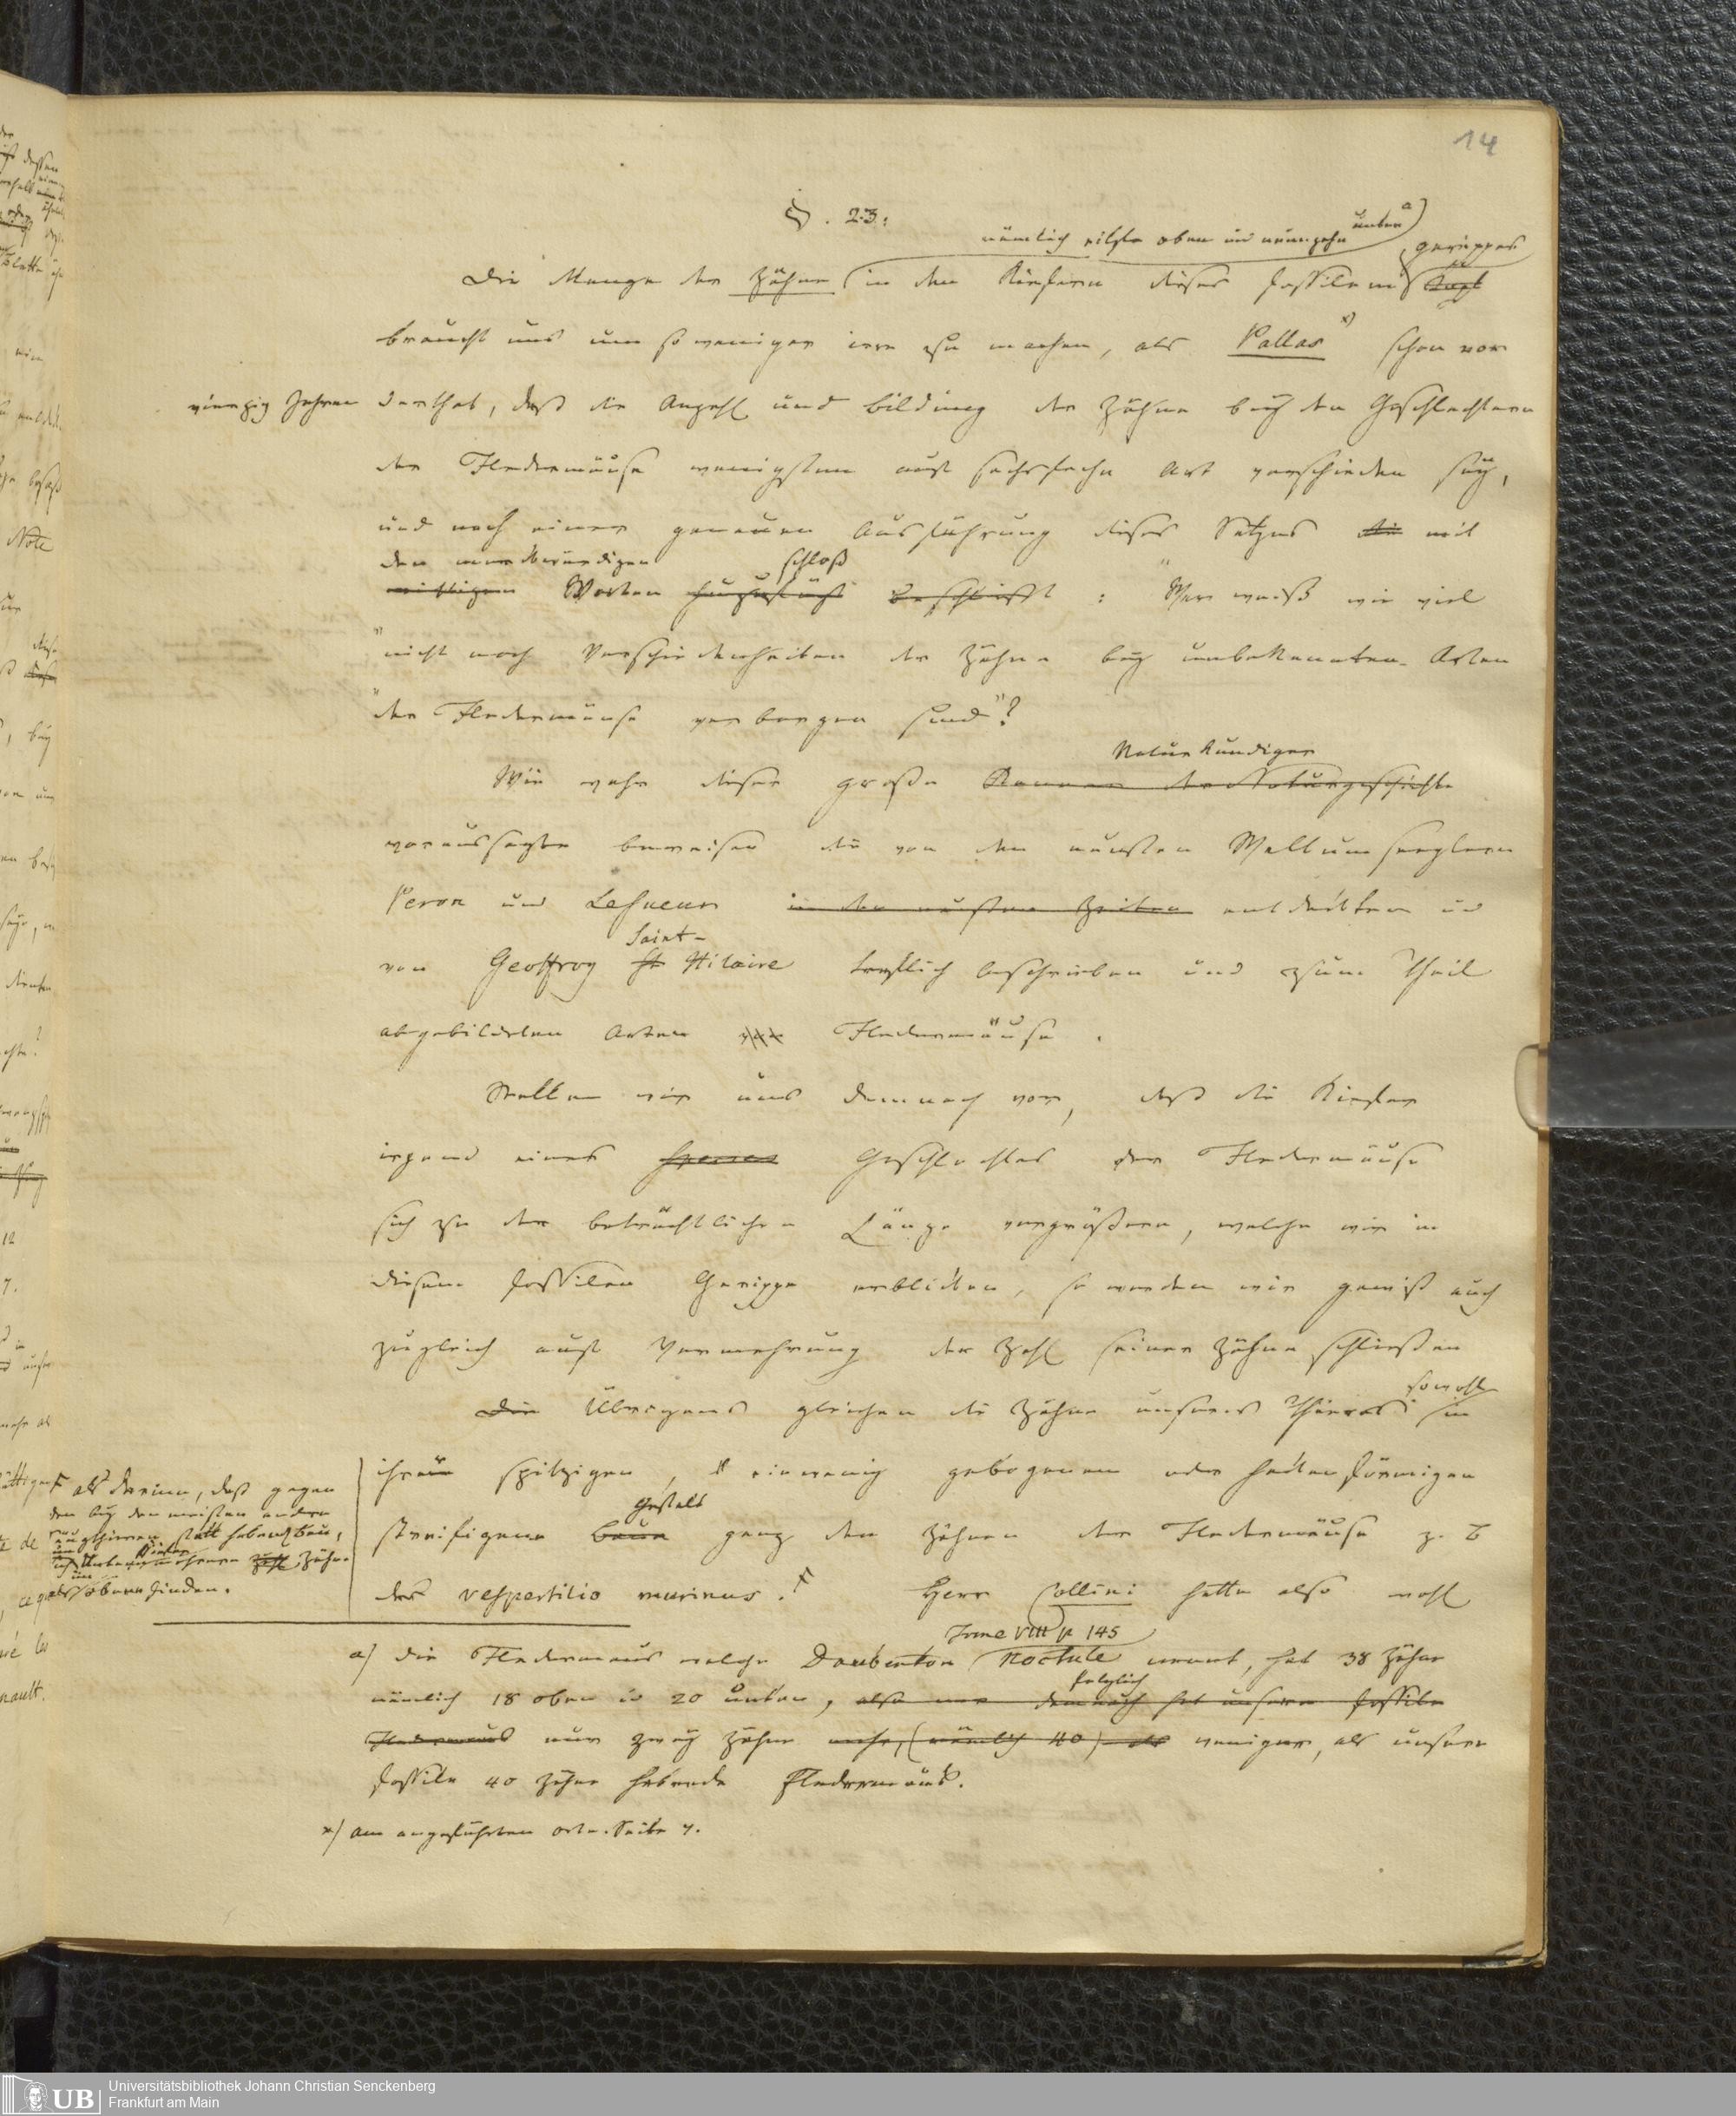 14
§. 23.
nämlich eilfe oben und neunzehn unten a)
Die Menge der Zähne in den Kiefern dieses fossilen Gerippes
braucht uns um so weniger irre zu machen, als Pallas x) schon vor
vierzig Jahren darthat, daß die Anzahl und Bildung der Zähne bey den Geschlechtern
der Fledermäuse wenigstens auf sechsfache Art verschieden sey,
und nach einer genauen Ausführung dieses Satzes die mit
den merkwürdigen schloß
wichtigen Worten beschließt : "Wer weiß wie viel
"nicht noch Verschiedenheiten der Zähne bey unbekannten Arten
"der Fledermäuse verborgen sind"?
Naturkundiger
Wie wahr dieser große Kenner der Naturgeschichte
voraussagte beweisen die von den neusten Weltumseglern
Peron und LeSueur in den neusten Zeiten entdeckten und
Saint-
von Geoffroy St Hilaire trefflich beschrieben und zum Theil
abgebildeten Arten Fledermäuse.
Stellen wir uns demnach vor, daß die Kiefer
irgend eines Geschlechtes der Fledermäuse
sich zu der beträchtlichen Länge vergrößern, welche wir in
diesem fossilen Gerippe erblicken, so werden wir gewiß auch
zugleich auf Vermehrung der Zahl seiner Zähne schließen
sowohl
Die Übrigens gleichen die Zähne unseres Thieres in
ihrer spitzigen, ein wenig gebogenen oder hackenförmigen
Gestalt
streifigen ganz den Zähnen der Fledermäuse z. B
des vespertilio murinus. F Herr Collini hatte also wohl
F als darinn, daß gegen
den bey den meisten andern
Säugthieren statt habenden Bau,
im Unterkiefer mehrere Zahl Zähne
als im obern finden.
Tome VIII p 145
a) Die Fledermaus welche Daubenton Noctule nennt, hat 38 Zähne
folglich
nämlich 18 oben und 20 unten, also nur demnach hat unsere fossile
Fledermaus nur zwey Zähne mehr, (nämlich 40) als weniger, als unsere
fossile 40 Zähne habende Fledermaus.
x) am angeführten Orte. Seite 7.
UB
Universitätsbibliothek Johann Christian Senckenberg
Frankfurt am Main